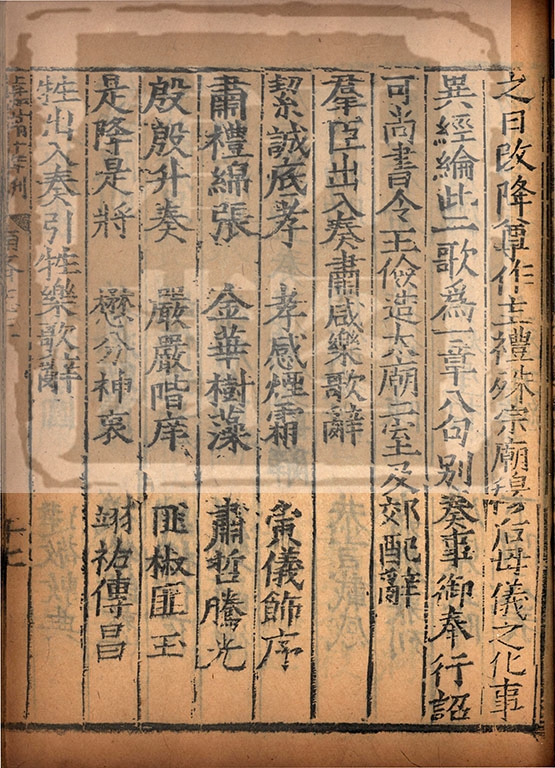 之日改降尊作主禮殊宗廟穆后母儀之化事
異經綸此二歌爲一章八句别奏事御奉行詔
可尚書令王儉造太廟二室及郊配辭
羣臣出入奏肅咸樂歌辭
絜誠底孝 孝感煙霜 夤儀飾序
肅禮綿張 金華樹藻 肅哲騰光
殷殷升奏 嚴嚴階庠 匪椒匪玉
是降是將 懋分神衷 翊祐傳昌
牲出入奏引牲樂歌辭
嘉靖十年刊